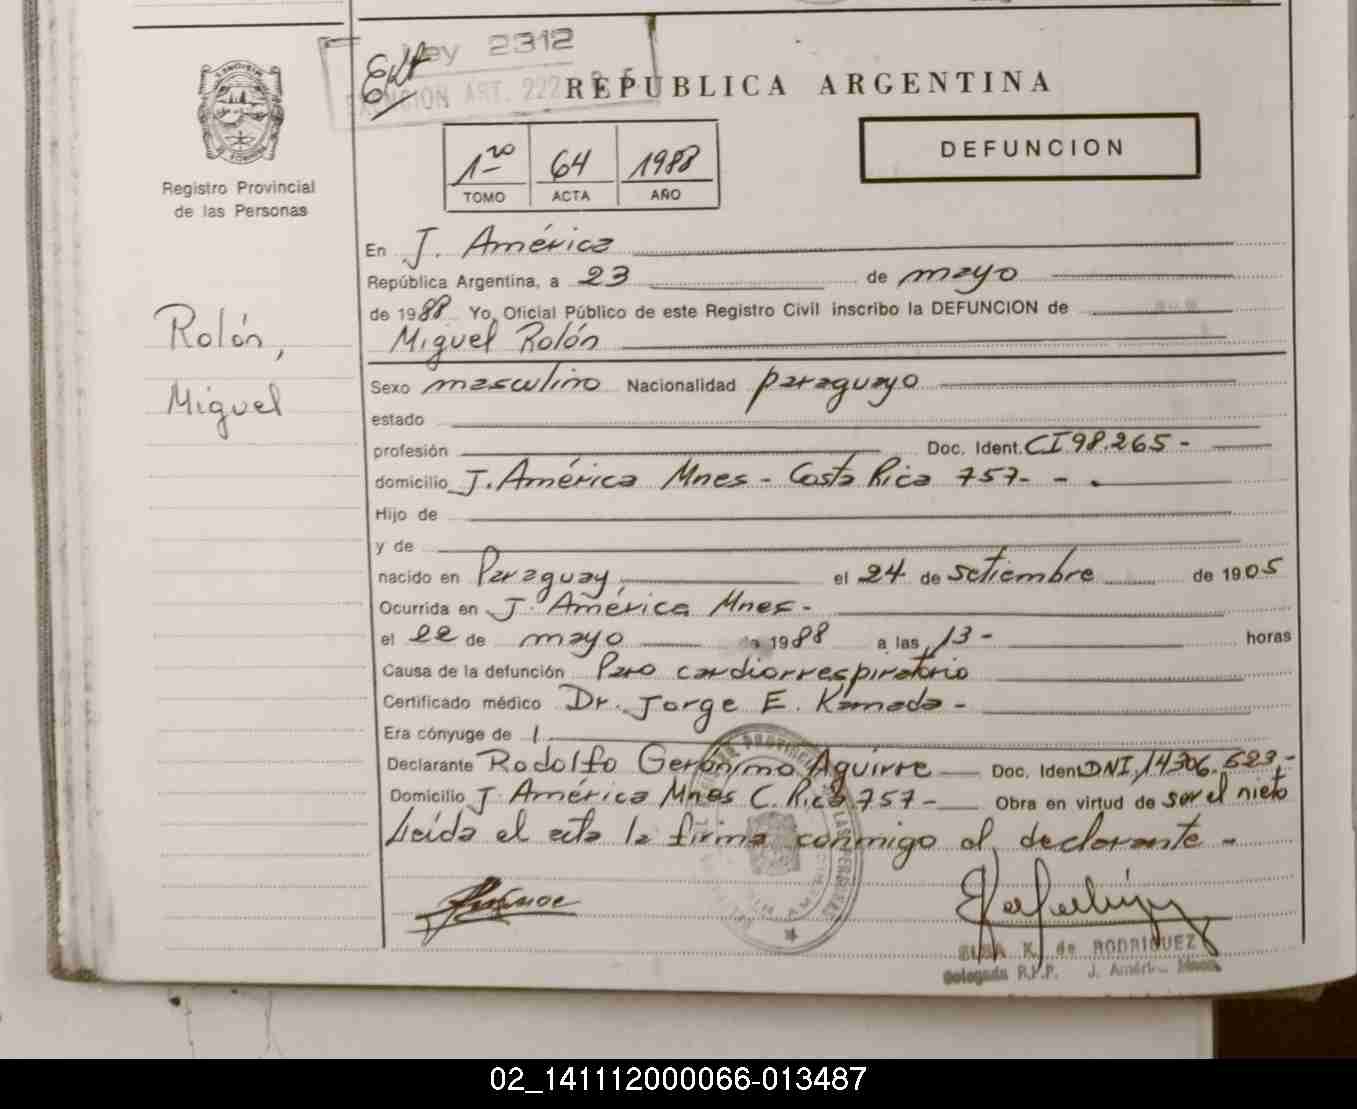 Ley 2312
Ext
EXENCION ART. 222
REPUBLICA ARGENTINA
1ro 64 1988
TOMO ACTA AÑO
DEFUNCION
Registro Provincial
de las Personas
Rolón,
Miguel
En J. América
República Argentina, a 23 de mayo
de 1988 Yo, Oficial Público de este Registro Civil inscribo la DEFUNCION de
Miguel Rolón
Sexo masculino Nacionalidad paraguayo
estado
profesión Doc. Ident. CI 98.265 -
domicilio J. América Mnes - Costa Rica 757 - - .
Hijo de
y de
nacido en Paraguay, el 24 de setiembre de 1905
Ocurrida en J. América Mnes -
el 22 de mayo de 1988 a las 13 - horas
Causa de la defunción Paro cardiorrespiratorio
Certificado médico Dr. Jorge E. Kamada -
Era cónyuge de
Declarante Rodolfo Gerónimo Aguirre Doc. Ident. DNI, 14306.623 -
Domicilio J. América Mnes C. Rica 757 - Obra en virtud de ser el nieto
Leída el acta la firma conmigo el declarante -
ELSA K. de RODRIGUEZ
Delegada R.P.P. J. América
02_141112000066-013487